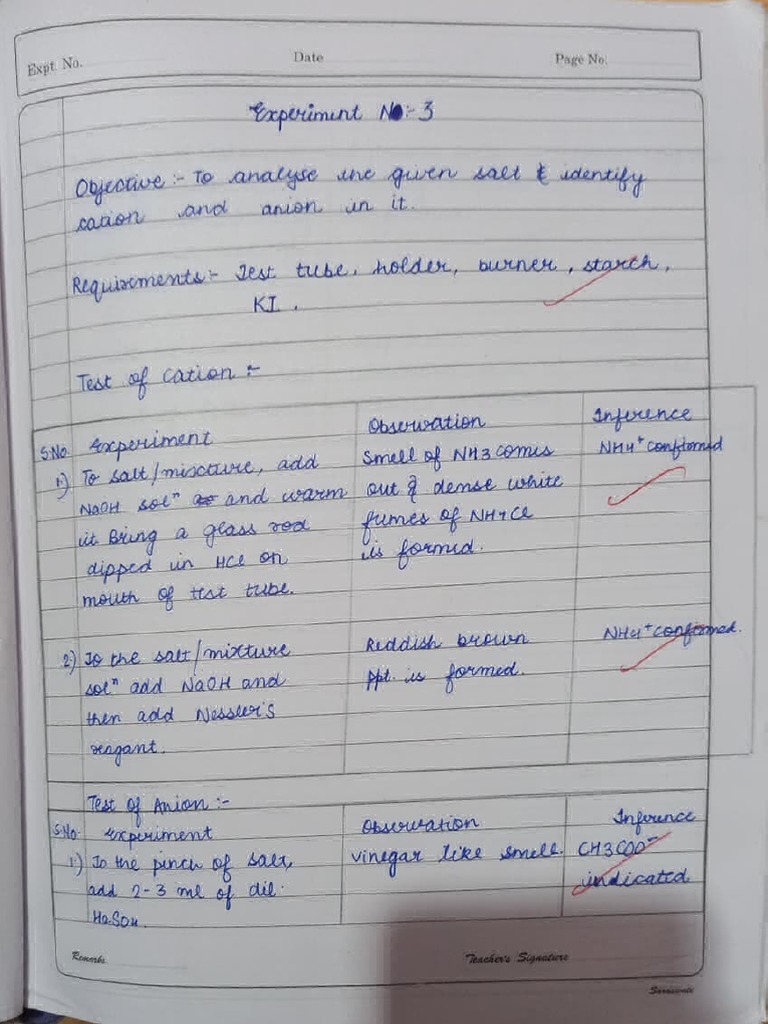 Expt. No.
Date
Page No.
Experiment No:- 3
Objective :- To analyse the given salt & identify
cation and anion in it.
Requirements:- Test tube, holder, burner, starch,
KI.
Test of Cation :-
S.No.
Experiment
Observation
Inference
1.) To salt/mixture, add
NaOH solⁿ and warm
it. Bring a glass rod
dipped in HCl on
mouth of test tube.
Smell of NH3 comes
out & dense white
fumes of NH4Cl
is formed.
NH4⁺ confirmed
2.) To the salt/mixture
solⁿ add NaOH and
then add Nessler's
reagant.
Reddish brown
ppt. is formed.
NH4⁺ confirmed.
Test of Anion :-
S.No.
Experiment
Observation
Inference
1.) To the pinch of salt,
add 2-3 ml of dil.
H2SO4.
vinegar like smell.
CH3COO⁻
indicated
Remarks
Teacher's Signature